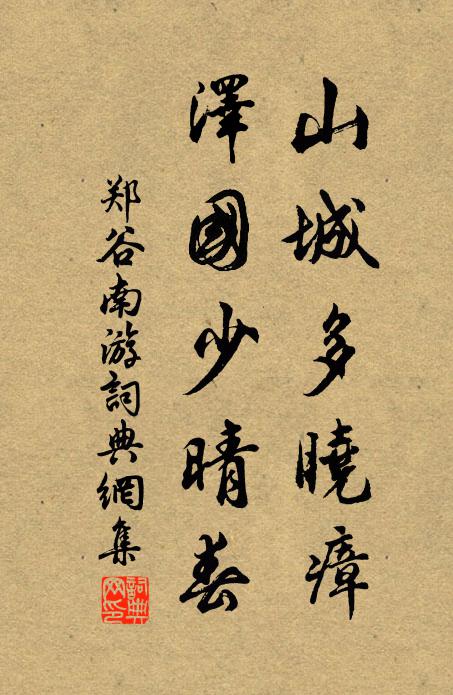 山城多曉瘴
澤國少晴春
郑谷南游詞典網集
詞典网印